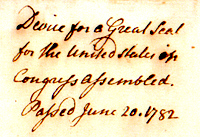 Device for a Great Seal
for the United States in
Congress Assembled.
Passed June 20. 1782